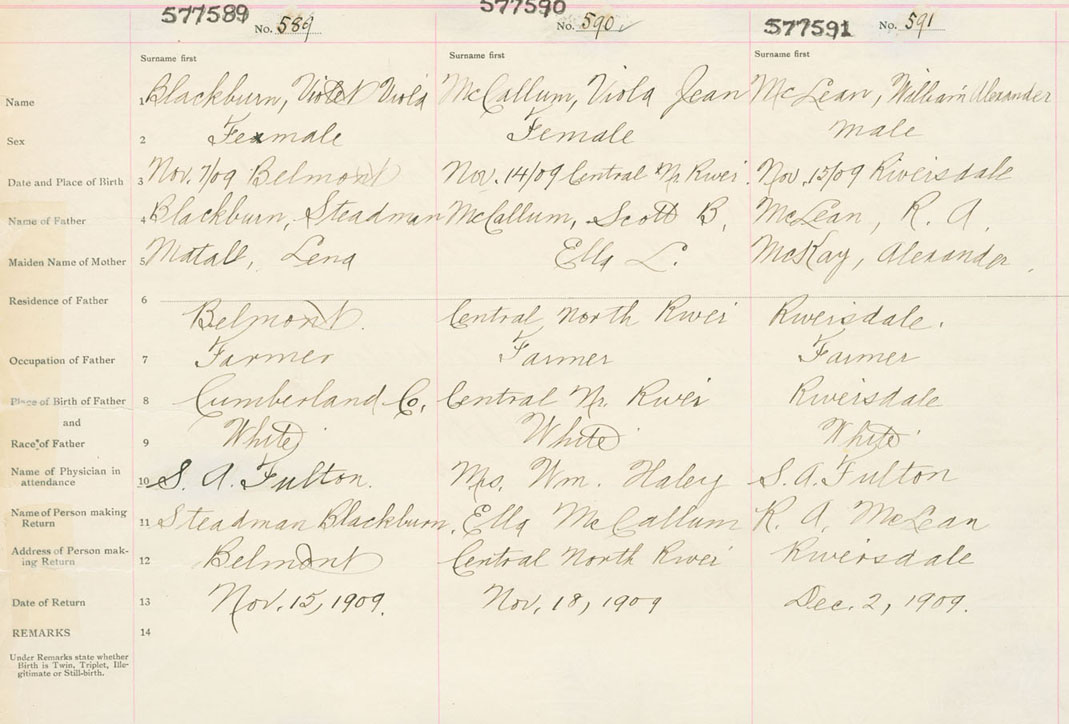 577589 577590 577591
No. 589 No. 590 No. 591
Surname first Surname first Surname first
Name 1 Blackburn, Violet Viola McCallum, Viola Jean McLean, William Alexander
Sex 2 Female Female male
Date and Place of Birth 3 Nov. 7/09 Belmont Nov. 14/09 Central N. River Nov. 15/09 Riversdale
Name of Father 4 Blackburn, Steadman McCallum, Scott B. McLean, R. A.
Maiden Name of Mother 5 Matall, Lena Ella L. McKay, Alexander.
Residence of Father 6 Belmont. Central North River Riversdale.
Occupation of Father 7 Farmer Farmer Farmer
Place of Birth of Father 8 Cumberland Co. Central N. River Riversdale
and
Race of Father 9 White White White
Name of Physician in attendance 10 S. A. Fulton. Mrs. Wm. Haley S. A. Fulton
Name of Person making Return 11 Steadman Blackburn. Ella McCallum R. A. McLean
Address of Person mak-ing Return 12 Belmont Central North River Riversdale
Date of Return 13 Nov. 15, 1909. Nov. 18, 1909 Dec. 2, 1909.
REMARKS 14
Under Remarks state whether
Birth is Twin, Triplet, Ille-
gitimate or Still-birth.